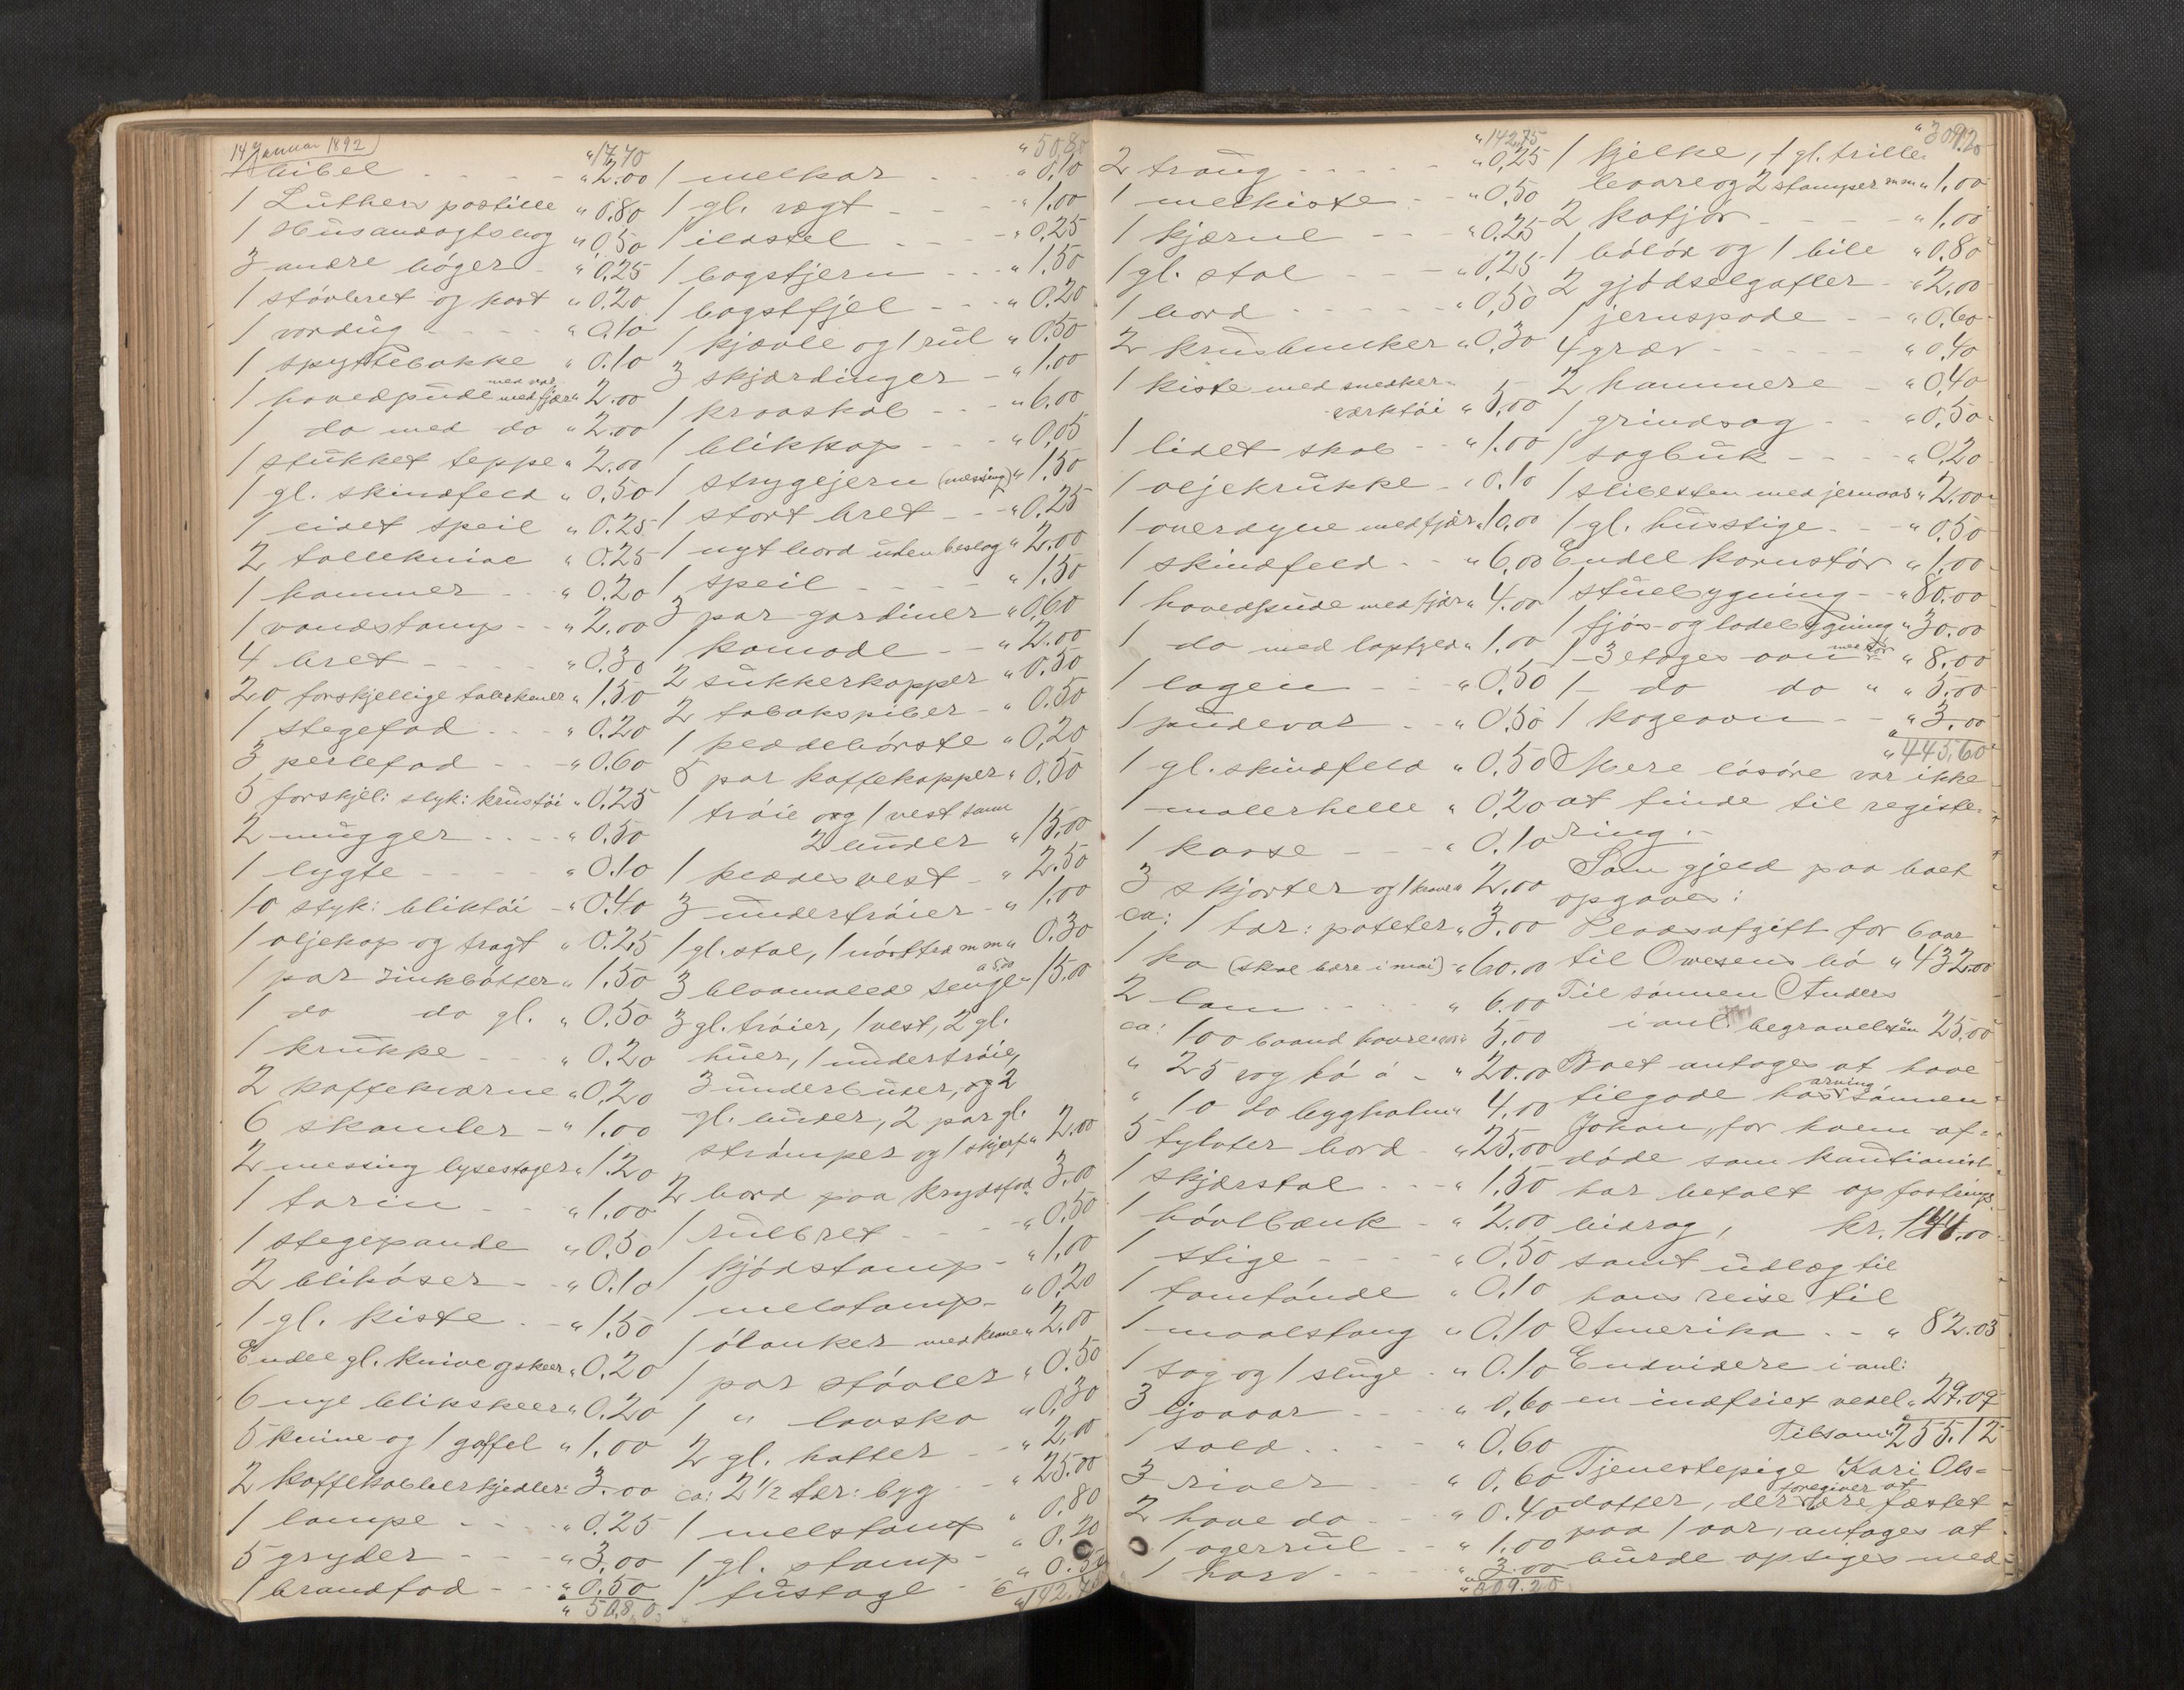 14 Januar 1892
" 17.40
1 bibel " 2.00
1 Luthers postille " 0.80
1 Husandagtsbog " 0.50
3 andre bøger " 0.25
1 støvbret og kost " 0.20
1 " 0.10
1 spyttebakke " 0.10
1 hovedpude med var med fjær " 2.00
1 do med do " 2.00
1 stukket teppe " 2.00
1 gl. skindfeld " 0.50
1 lidet speil " 0.25
2 tolleknive " 0.25
1 hammer " 0.20
1 vandstamp " 2.00
4 bret " 0.30
20 forskjellige talerkener " 1.50
1 stegefad " 0.20
3 perlefad " 0.60
5 forskjel: styk: krustøi " 0.25
2 mugger " 0.50
1 lygte " 0.10
10 styk: bliktøi " 0.40
1 oljekop og tragt " 0.25
1 par zinkbøtter " 1.50
1 do do gl. " 0.50
1 krukke " 0.20
2 kaffekværne " 0.20
6 skamler " 1.00
2 messing lysestager " 1.20
1 tarin " 1.00
1 stegepande " 0.50
2 blikøser " 0.10
1 gl. kiste " 1.50
Endel gl. knive og skeer " 0.20
6 nye blikskeer " 0.20
5 knive og 1 gaffel " 1.00
2 kaffekobberkjedler: 3.00
1 lampe " 0.25
5 gryder " 3.00
1 brandfad " 0.50
" 50.80
" 50.80
1 melkar " 0.10
1 gl. vægt " 1.00
1 ildstel " 0.25
1 bagstjern " 1.50
1 bagstfjel " 0.20
1 kjævle og 1 rul " 0.50
3 skjærdinger " 1.00
1 kraaskab " 6.00
1 blikkop " 0.05
1 strygejern (messing) " 1.50
1 stort bret " 0.25
1 nyt bord uden beslag " 2.00
1 speil " 1.50
3 par gardiner " 0.60
1 komode " 2.00
2 sukkerkopper " 0.50
2 tobakspiber " 0.50
1 klædebørste " 0.20
5 par kaffekopper " 0.50
1 trøie og 1 vest samt
2 buxer " 15.00
1 klædesvest " 2.50
3 undertrøier " 1.00
1 gl. stol, mm " 0.30
3 blaamalede senge a 5.00 " 15.00
3 gl. trøier, 1 vest, 2 gl.
huer, 1 undertrøie,
3 underbuxer, og 2
gl. buxer, 2 par gl.
strømper og 1 skjerf " 2.00
2 bord paa krydsfod 3.00
1 rulbret " 0.50
1 kjødstamp " 1.00
1 melstamp " 0.20
1 ølanker med krane " 2.00
1 par støvler " 0.50
1 " lavsko " 0.30
2 gl. hatter " 2.00
ca: 2 1/2 tdr: byg " 25.00
1 melstamp " 0.80
1 gl. stamp " 0.20
1 fustage " 0.50
" 142.75
" 142.75
2 traug " 0.25
1 melkiste " 0.50
1 kjærne " 0.25
1 gl. stol " 0.25
1 bord " 0.50
2 krusbunker " 0.30
1 kiste med snedker-
værktøi " 5.00
1 lidet skab " 1.00
1 oljekrukke " 0.10
1 overdyne med fjær " 10.00
1 skindfeld " 6.00
1 hovedpude med fjær " 4.00
1 do med " 1.00
1 lagen " 0.50
1 pudevar " 0.50
1 gl. skindfeld " 0.50
1 malerhelle " 0.20
1 kasse " 0.10
3 skjorter og 1 krave " 2.00
ca: 1 tdr: poteter " 3.00
1 ko (skal bære i mai) " 60.00
2 lam " 6.00
ca: 100 baand havre " 5.00
" 25 vog hø á " 20.00
" 10 do byghalm " 4.00
5 tylvter bord " 25.00
1 skjærstol " 1.50
1 høvlbænk " 2.00
1 stige " 0.50
1 tomtønde " 0.10
1 maalstang " 0.10
1 sag og 1 sluge " 0.10
3 ljaaor " 0.60
1 sold " 0.60
3 river " 0.60
2 have do " 0.40
1 agerrul " 1.00
1 harv " 3.00
" 309.20
" 309.20
1 kjelke, 1 gl. trille-
baare og 2 stamper mm " 1.00
2 kofjør " 1.00
1 bøløx og 1 bile " 0.80
2 gjødselgafler " 2.00
1 jernspade " 0.60
4 græv " 0.40
2 hammere " 0.40
1 grindsag " 0.50
1 sagbuk " 0.20
1 slibesten med jernaas " 2.00
1 gl. husstige " 0.50
Endel kornstør " 1.00
1 stuebygning " 80.00
1 fjøs- og ladebygning " 30.00
1 - 3 etages ovn med rør " 8.00
1 - do do " " 5.00
1 kogeovn " 3.00
" 445.60
Mere løsøre var ikke
at finde til registe-
ring.-
Som gjeld paa boet
opgaves:
Pladsafgift for 6 aar
til Owesens bo " 432.00
Til sønnen Anders
i anl: begravelsen 25.00
Boet antages at have
tilgode hos arving sønnen
Johan, for hvem af-
døde som kautionist
har betalt opfostrings-
bidrag, kr. 144.00
samt udlæg til
hans reise til
Amerika " 82.03
Endvidere i anl:
en indfriet vexel " 29.09
Tilsam: " 255.12
Tjenestepige Kari Ols-
datter, der foregiver at være fæstet
paa 1 aar, antages at
burde opsiges med